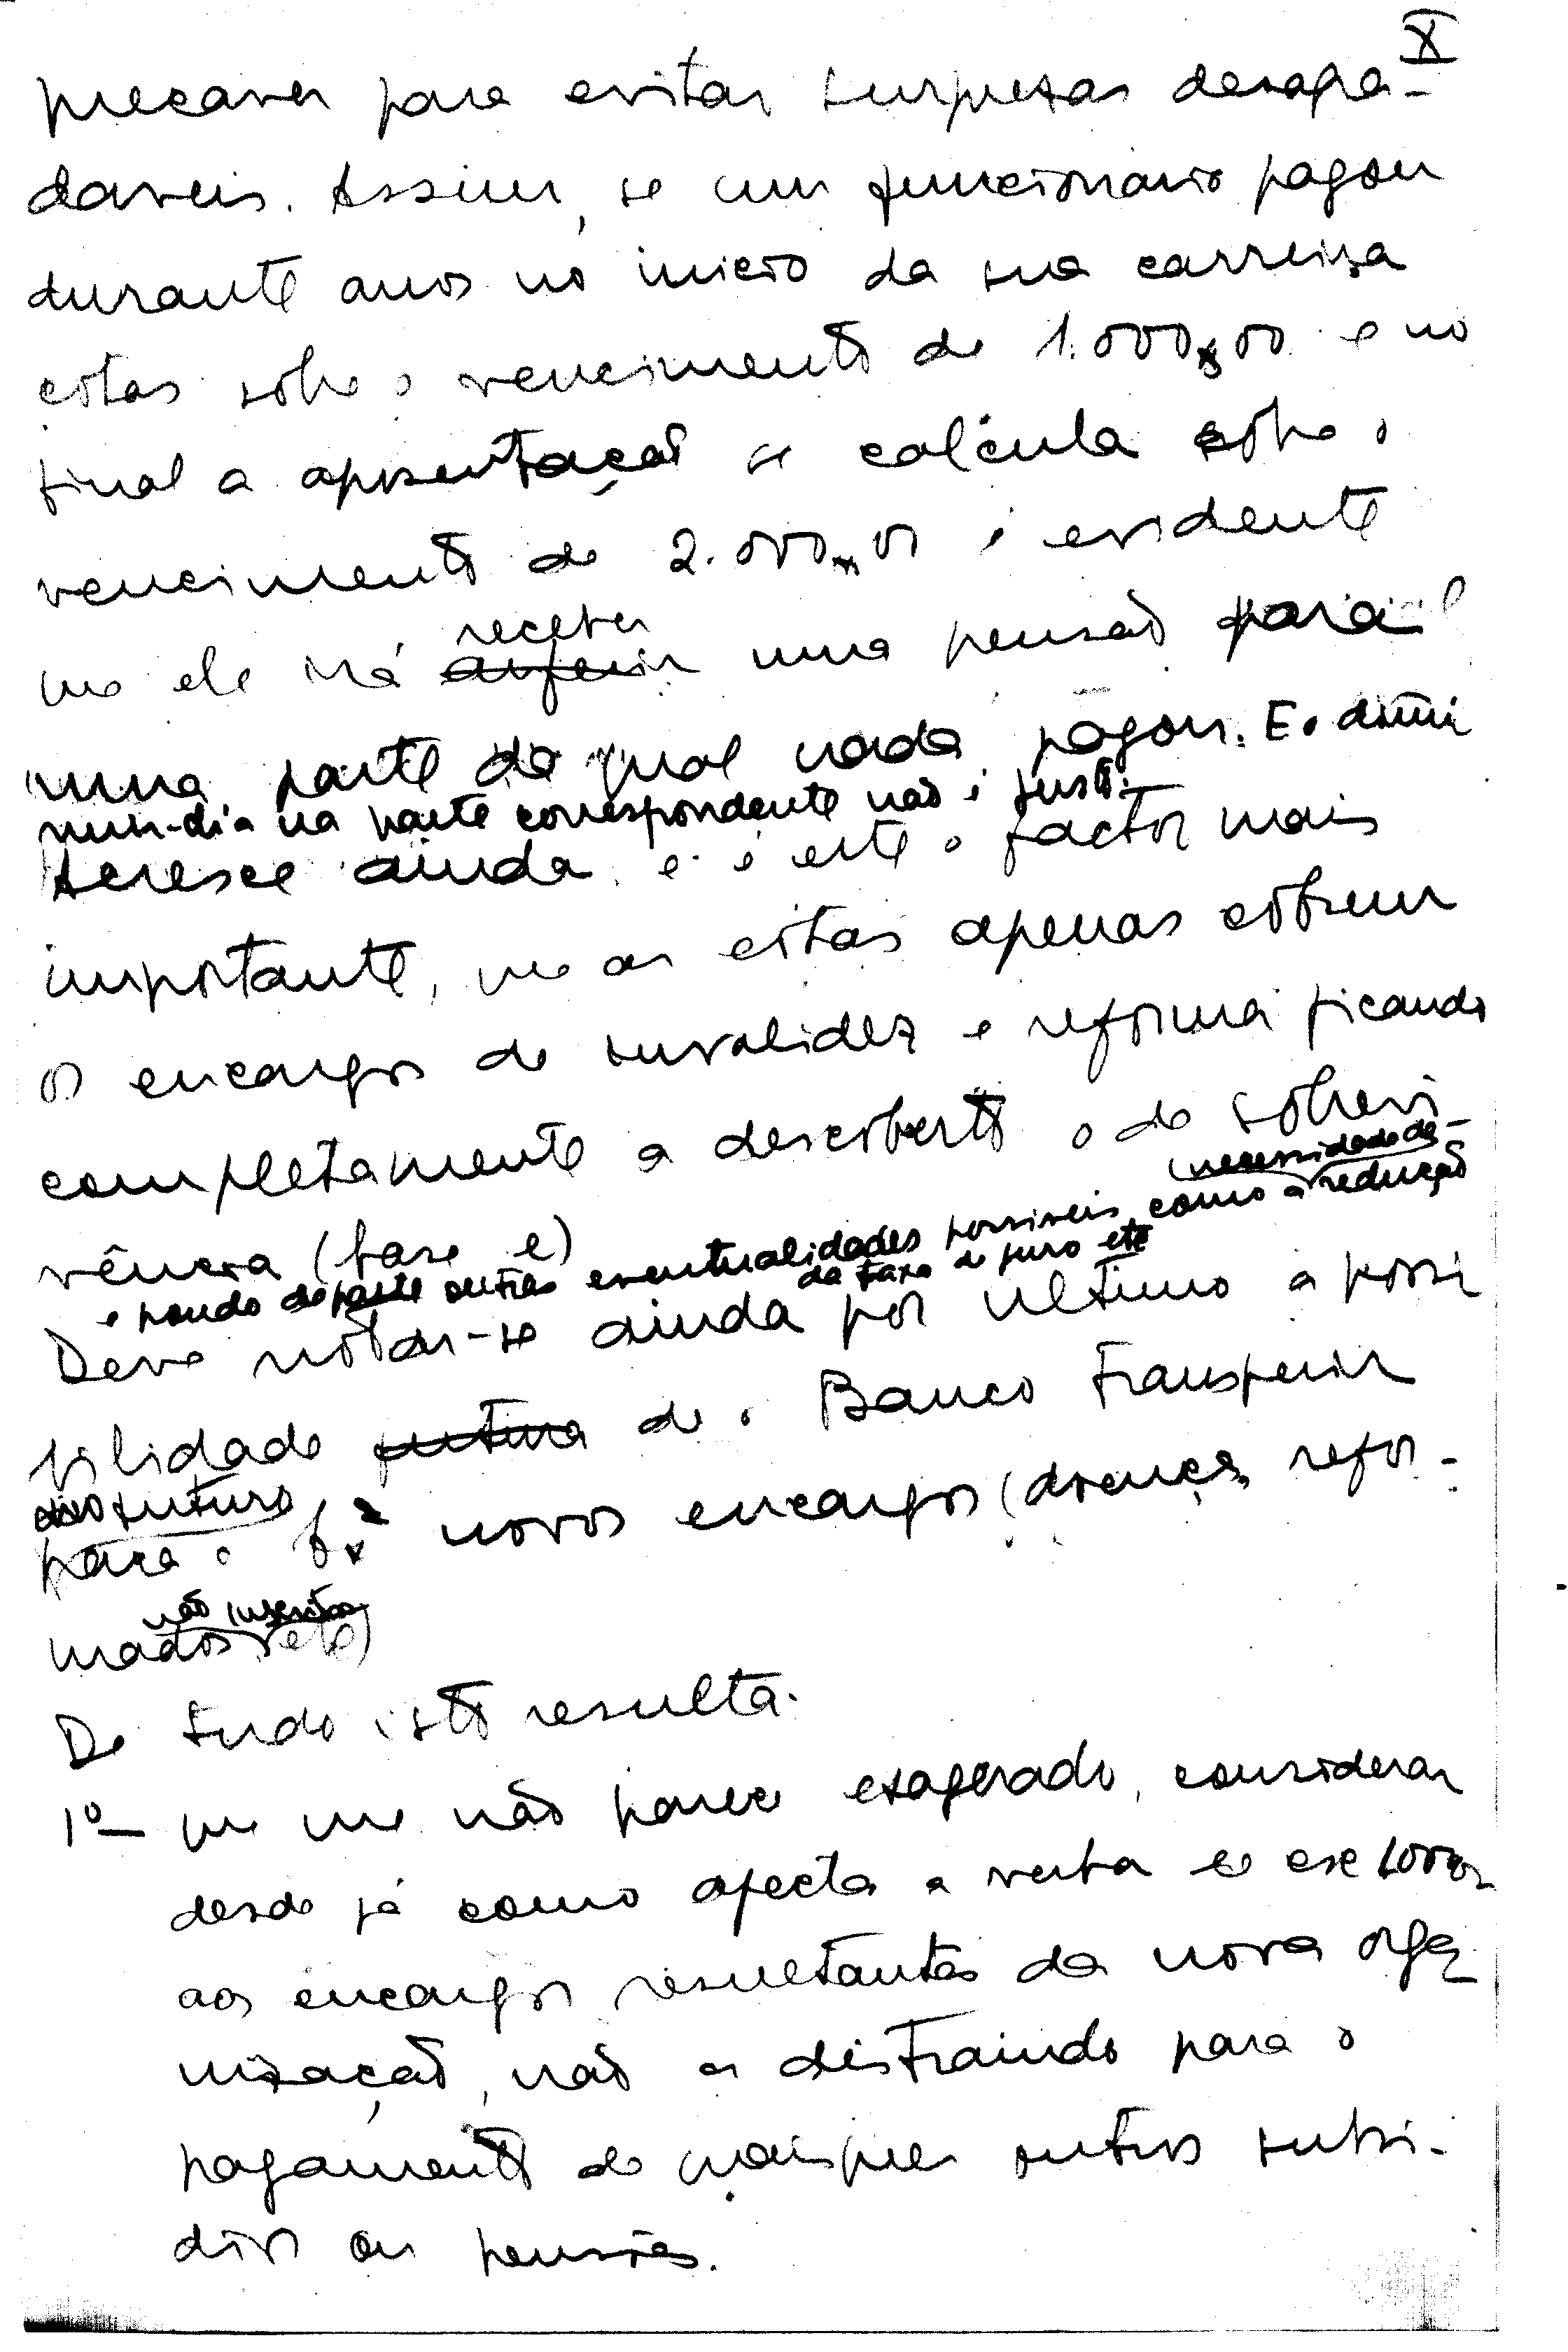 X
precaver para evitar surpresas desagra-
daveis. Assim, se um funcionario pagou
durante anos no inicio da sua carreira
cotas sobre o vencimento de 1.000$00 e no
final a aposentação se calcula sobre o
vencimento de 2.000$00 é evidente
que ele irá auferir receber uma pensão para
uma parte da qual nada pagou. E o dimi
nuir-dia na parte correspondente não é justo.
Acresce ainda, e é este o factor mais
importante, que as cotas apenas cobrem
os encargos de invalidez e reforma ficando
completamente a descoberto o de sobrevi
vência (base e)
e pondo de parte outras eventualidades possiveis, como a necessidade de redução
da taxa de juro etc
Deve notar-se ainda por ultimo a possi
bilidade futura de o Banco transferir
no futuro
para o novos encargos (doença, refor-
mados não inscritos etc)
De tudo isto resulta:
1º- que me não parece exagerado, considerar
desde já como afecta a verba de esc
aos encargos resultantes da nova orga
nização, não as distraindo para o
pagamento de quaisquer outros subsi-
dios ou pensões.